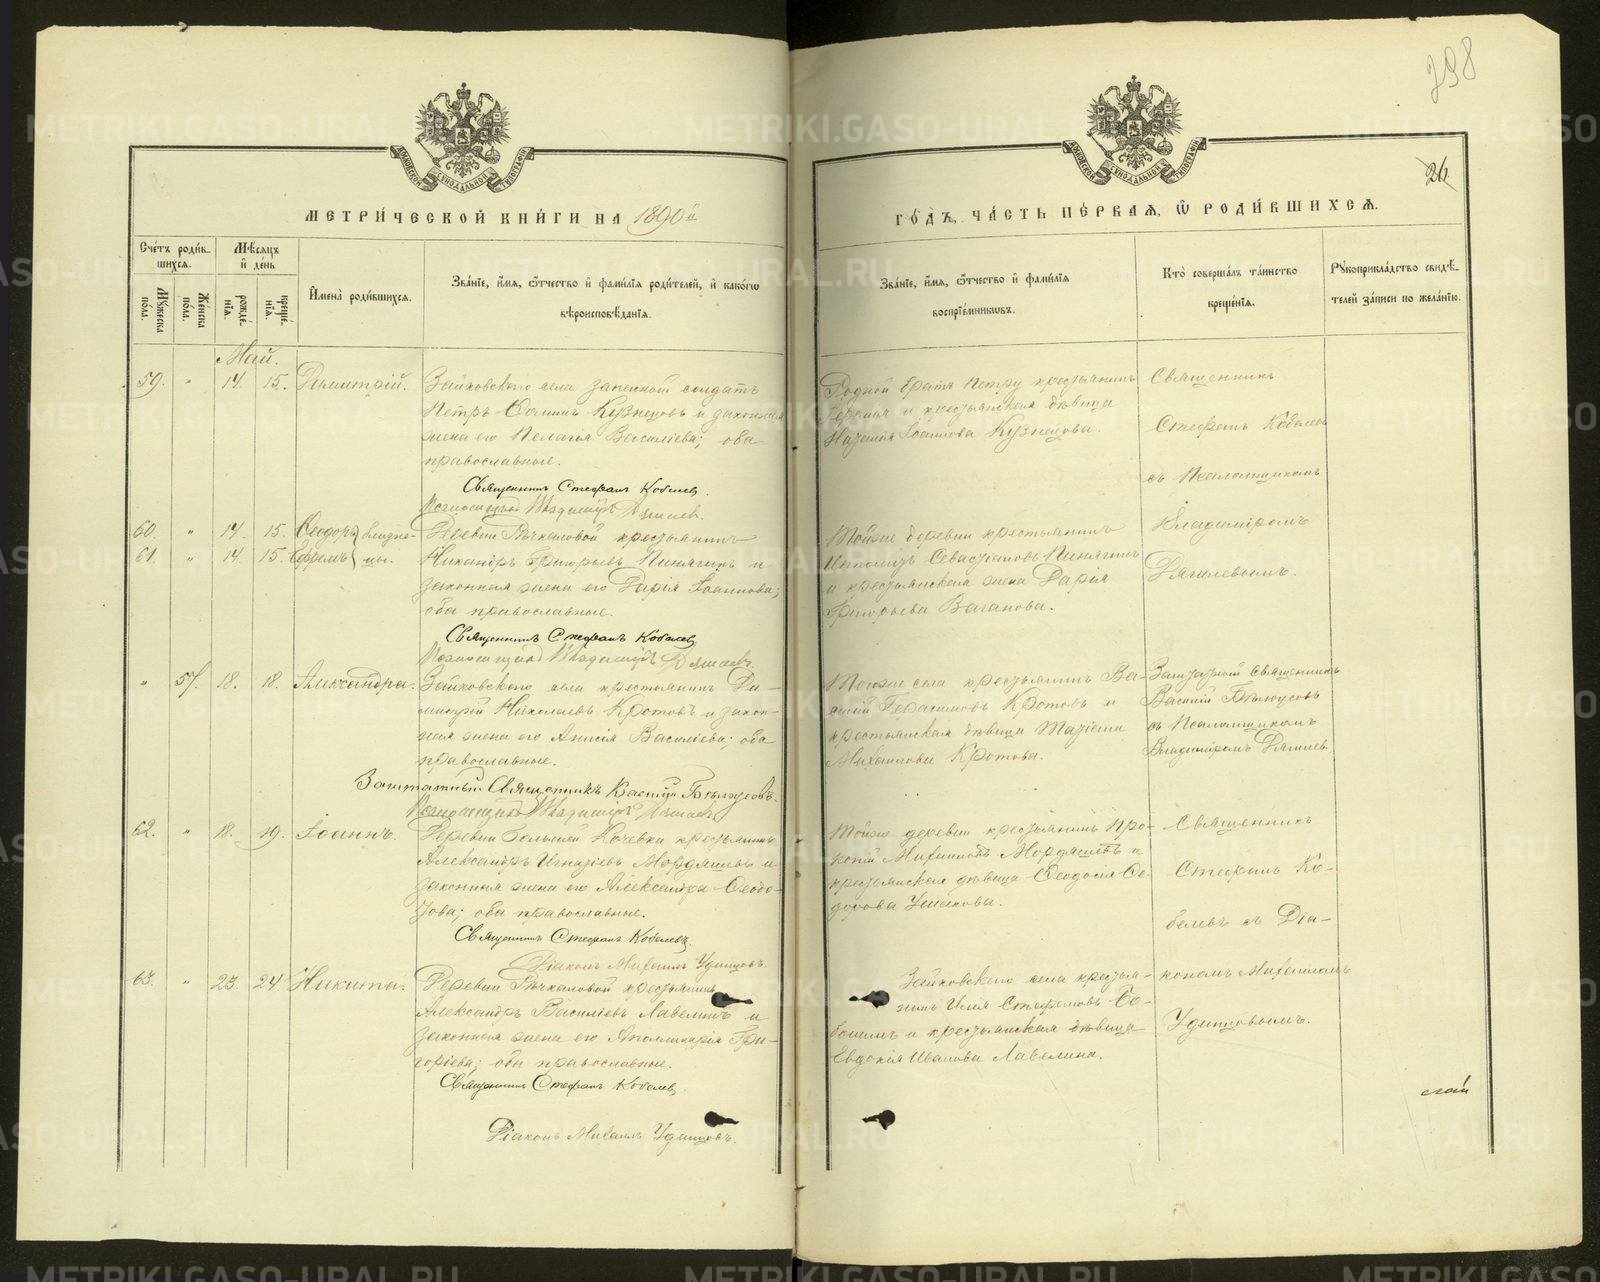 398
26
МЕТРИ́ЧЕСКОЙ КНИ́ГИ НА 1890й
ГО́ДЪ, ЧА́СТЬ ПЕ́РВАЯ, Ѡ РОДИ́ВШИХСЯ.
Сче́тъ роди́в-
шихся.
Мѣ́сяцъ
и де́нь
Му́жеска
по́ла.
Же́нска
по́ла.
рожде́-
нія.
креще́-
нія.
Имена̀ роди́вшихся.
Зва́ніе, и́мя, ѻ҆́тчество и фами́лія роди́телей, и како́гѡ
вѣроисповѣ́данія.
Зва́ніе, и́мя, ѻ҆́тчество и фами́лія
воспріе́мниковъ.
Кто̀ соверша́лъ та́инство
креще́нія.
Рукоприкла́дство свидѣ́-
телей за́писи по жела́нію.
Май.
59. " 14. 15. Димитрій.
Зайковскаго села запасной солдатъ
Петръ Ѳоминъ Кузнецовъ и законная
жена его Пелагія Василіева; оба
православные.
Священникъ Стефанъ Кобелев.
Псаломщикъ Владимиръ
Родной братъ Петру крестьянинъ
и крестьянская дѣвица
Іоаннова Кузнецова.
Священникъ
Стефанъ Кобелевъ
съ Псаломщикомъ
Владиміромъ
60. " 14. 15. Ѳеодоръ близне-
61. " 14. 15. Ефремъ цы.
Деревни Рѣчкаловой крестьянинъ
Никандръ Григорьевъ Пинягинъ и
законная жена его Дарія Іоаннова;
оба православные.
Священникъ Стефанъ Кобелев
Псаломщикъ Владимиръ
Тойже деревни крестьянинъ
Ипполитъ Севастьяновъ Пинягинъ
и крестьянская жена Дарія
Григорьева Ваганова.
" 57. 18. 18. Александра.
Зайковскаго села крестьянинъ Ди-
митрій Николаевъ Кротовъ и закон-
ная жена его Анисія Василіева; оба
православные.
Заштатный Священникъ Василій Бѣлоусовъ.
Псаломщикъ Владимиръ
Тогоже села крестьянинъ Ва-
силій Герасимовъ Кротовъ и
крестьянская дѣвица
Михаилова Кротова.
Заштатный Священникъ
Василій Бѣлоусовъ
съ Псаломщикомъ
Владиміромъ
62. " 18. 19. Іоаннъ.
Деревни Большей Кочевки крестьянинъ
Александръ Игнатіевъ Мордяшевъ и
законная жена его Александра Ѳеодо-
това; оба православные.
Священникъ Стефанъ Кобелевъ
Діаконъ Михаилъ Удинцовъ.
Тойже деревни крестьянинъ Про-
копій Михаиловъ Мордяшевъ и
крестьянская дѣвица Ѳеодосія Ѳе-
дорова Ушакова.
Священникъ
Стефанъ Ко-
белевъ съ Діа-
кономъ Михаиломъ
Удинцовымъ.
63. " 23. 24. Никита.
Деревни Рѣчкаловой крестьянинъ
Александръ Василіевъ Лавелинъ и
законная жена его Аполлинарія Гри-
горіева; оба православные.
Священникъ Стефанъ Кобелев.
Діаконъ Михаилъ Удинцовъ.
Зайковскаго села крестья-
нинъ Илія Стефановъ Со-
и крестьянская дѣвица
Евдокія Иванова Лавелина.